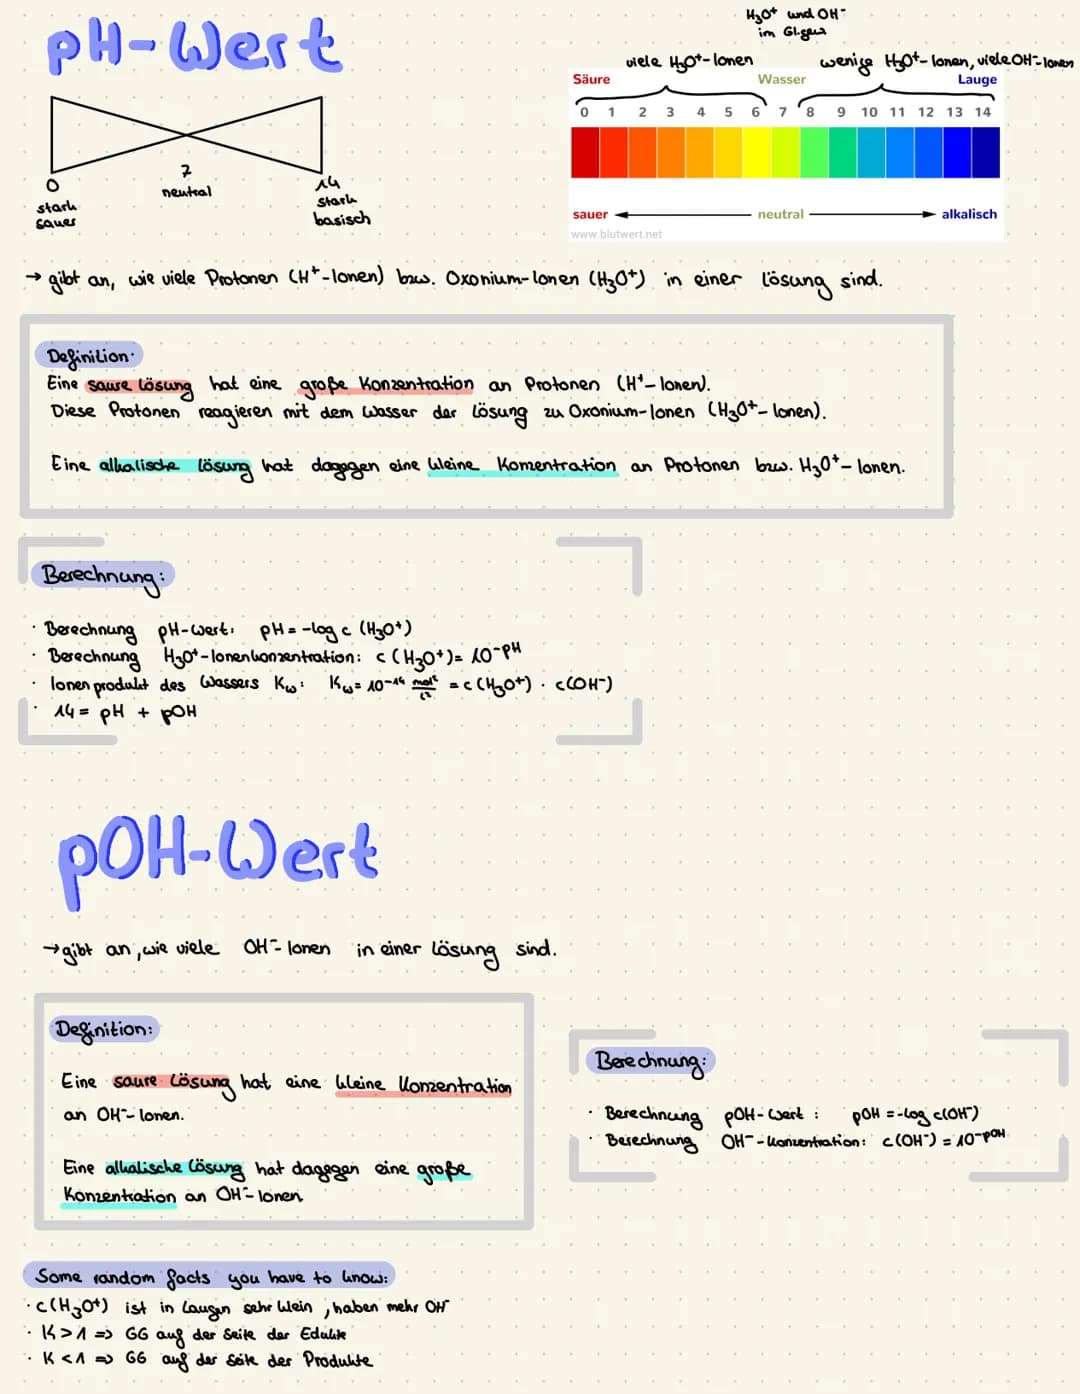 pH-Wert
H₃O⁺ und OH⁻
im Gl.gew
viele H₃O⁺-Ionen
wenige H₃O⁺-Ionen, viele OH⁻-Ionen
Säure Wasser Lauge
0 1 2 3 4 5 6 7 8 9 10 11 12 13 14
0
stark
sauer
7
neutral
14
stark
basisch
sauer neutral alkalisch
www.blutwert.net
→ gibt an, wie viele Protonen (H⁺-Ionen) bzw. Oxonium-Ionen (H₃O⁺) in einer Lösung sind.
Definition:
Eine saure Lösung hat eine große Konzentration an Protonen (H⁺-Ionen).
Diese Protonen reagieren mit dem Wasser der Lösung zu Oxonium-Ionen (H₃O⁺-Ionen).
Eine alkalische Lösung hat dagegen eine kleine Konzentration an Protonen bzw. H₃O⁺-Ionen.
Berechnung:
· Berechnung pH-Wert: pH = -log c (H₃O⁺)
· Berechnung H₃O⁺-Ionenkonzentration: c (H₃O⁺) = 10^-pH
· Ionenprodukt des Wassers Kw: Kw = 10⁻¹⁴ mol²/l² = c (H₃O⁺) · c(OH⁻)
· 14 = pH + pOH
pOH-Wert
→ gibt an, wie viele OH⁻-Ionen in einer Lösung sind.
Definition:
Eine saure Lösung hat eine kleine Konzentration
an OH⁻-Ionen.
Eine alkalische Lösung hat dagegen eine große
Konzentration an OH⁻-Ionen
Berechnung:
· Berechnung pOH-Wert : pOH = -log c(OH⁻)
· Berechnung OH⁻-Konzentration: c (OH⁻) = 10^-pOH
Some random facts you have to know:
· c (H₃O⁺) ist in Laugen sehr klein, haben mehr OH⁻
· K > 1 => GG auf der Seite der Edukte
· K < 1 => GG auf der Seite der Produkte